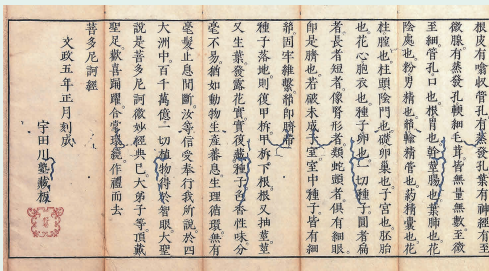 根皮有噏收管孔有蒸發孔葉有神經有至
微腺有蒸發孔輭細毛茸皆無量無數至微
至細管孔口也根胃也幹莖腸也葉肺也花
陰處也粉男精也鬚輸精管也葯精囊也花
柱膣也柱頭陰門也礎卵巢也子宮也胚胎
也花心胞衣也種子卵也一切種子圓者扁
者長者短者像腎形者類蛇頭者俱有細眼
即是臍也若破未成子室室中種子皆有細
蒂固牢維繫蒂即臍帶
種子落地則復甲柝甲柝下根根又抽莖莖
又生葉發露花實實後種子色香性味分
毫不易猶如動物生產蕃息生理循環無有
毫髮止息間斷汝等信受奉行我所說於四
大洲中百千萬億一切植物得於智眼大聖
說是菩多尼訶微妙經典已大弟子等頂戴
聖足歡喜踊躍合掌環繞作禮而去
菩多尼訶經
文政五年正月刻成
宇田川塾藏板